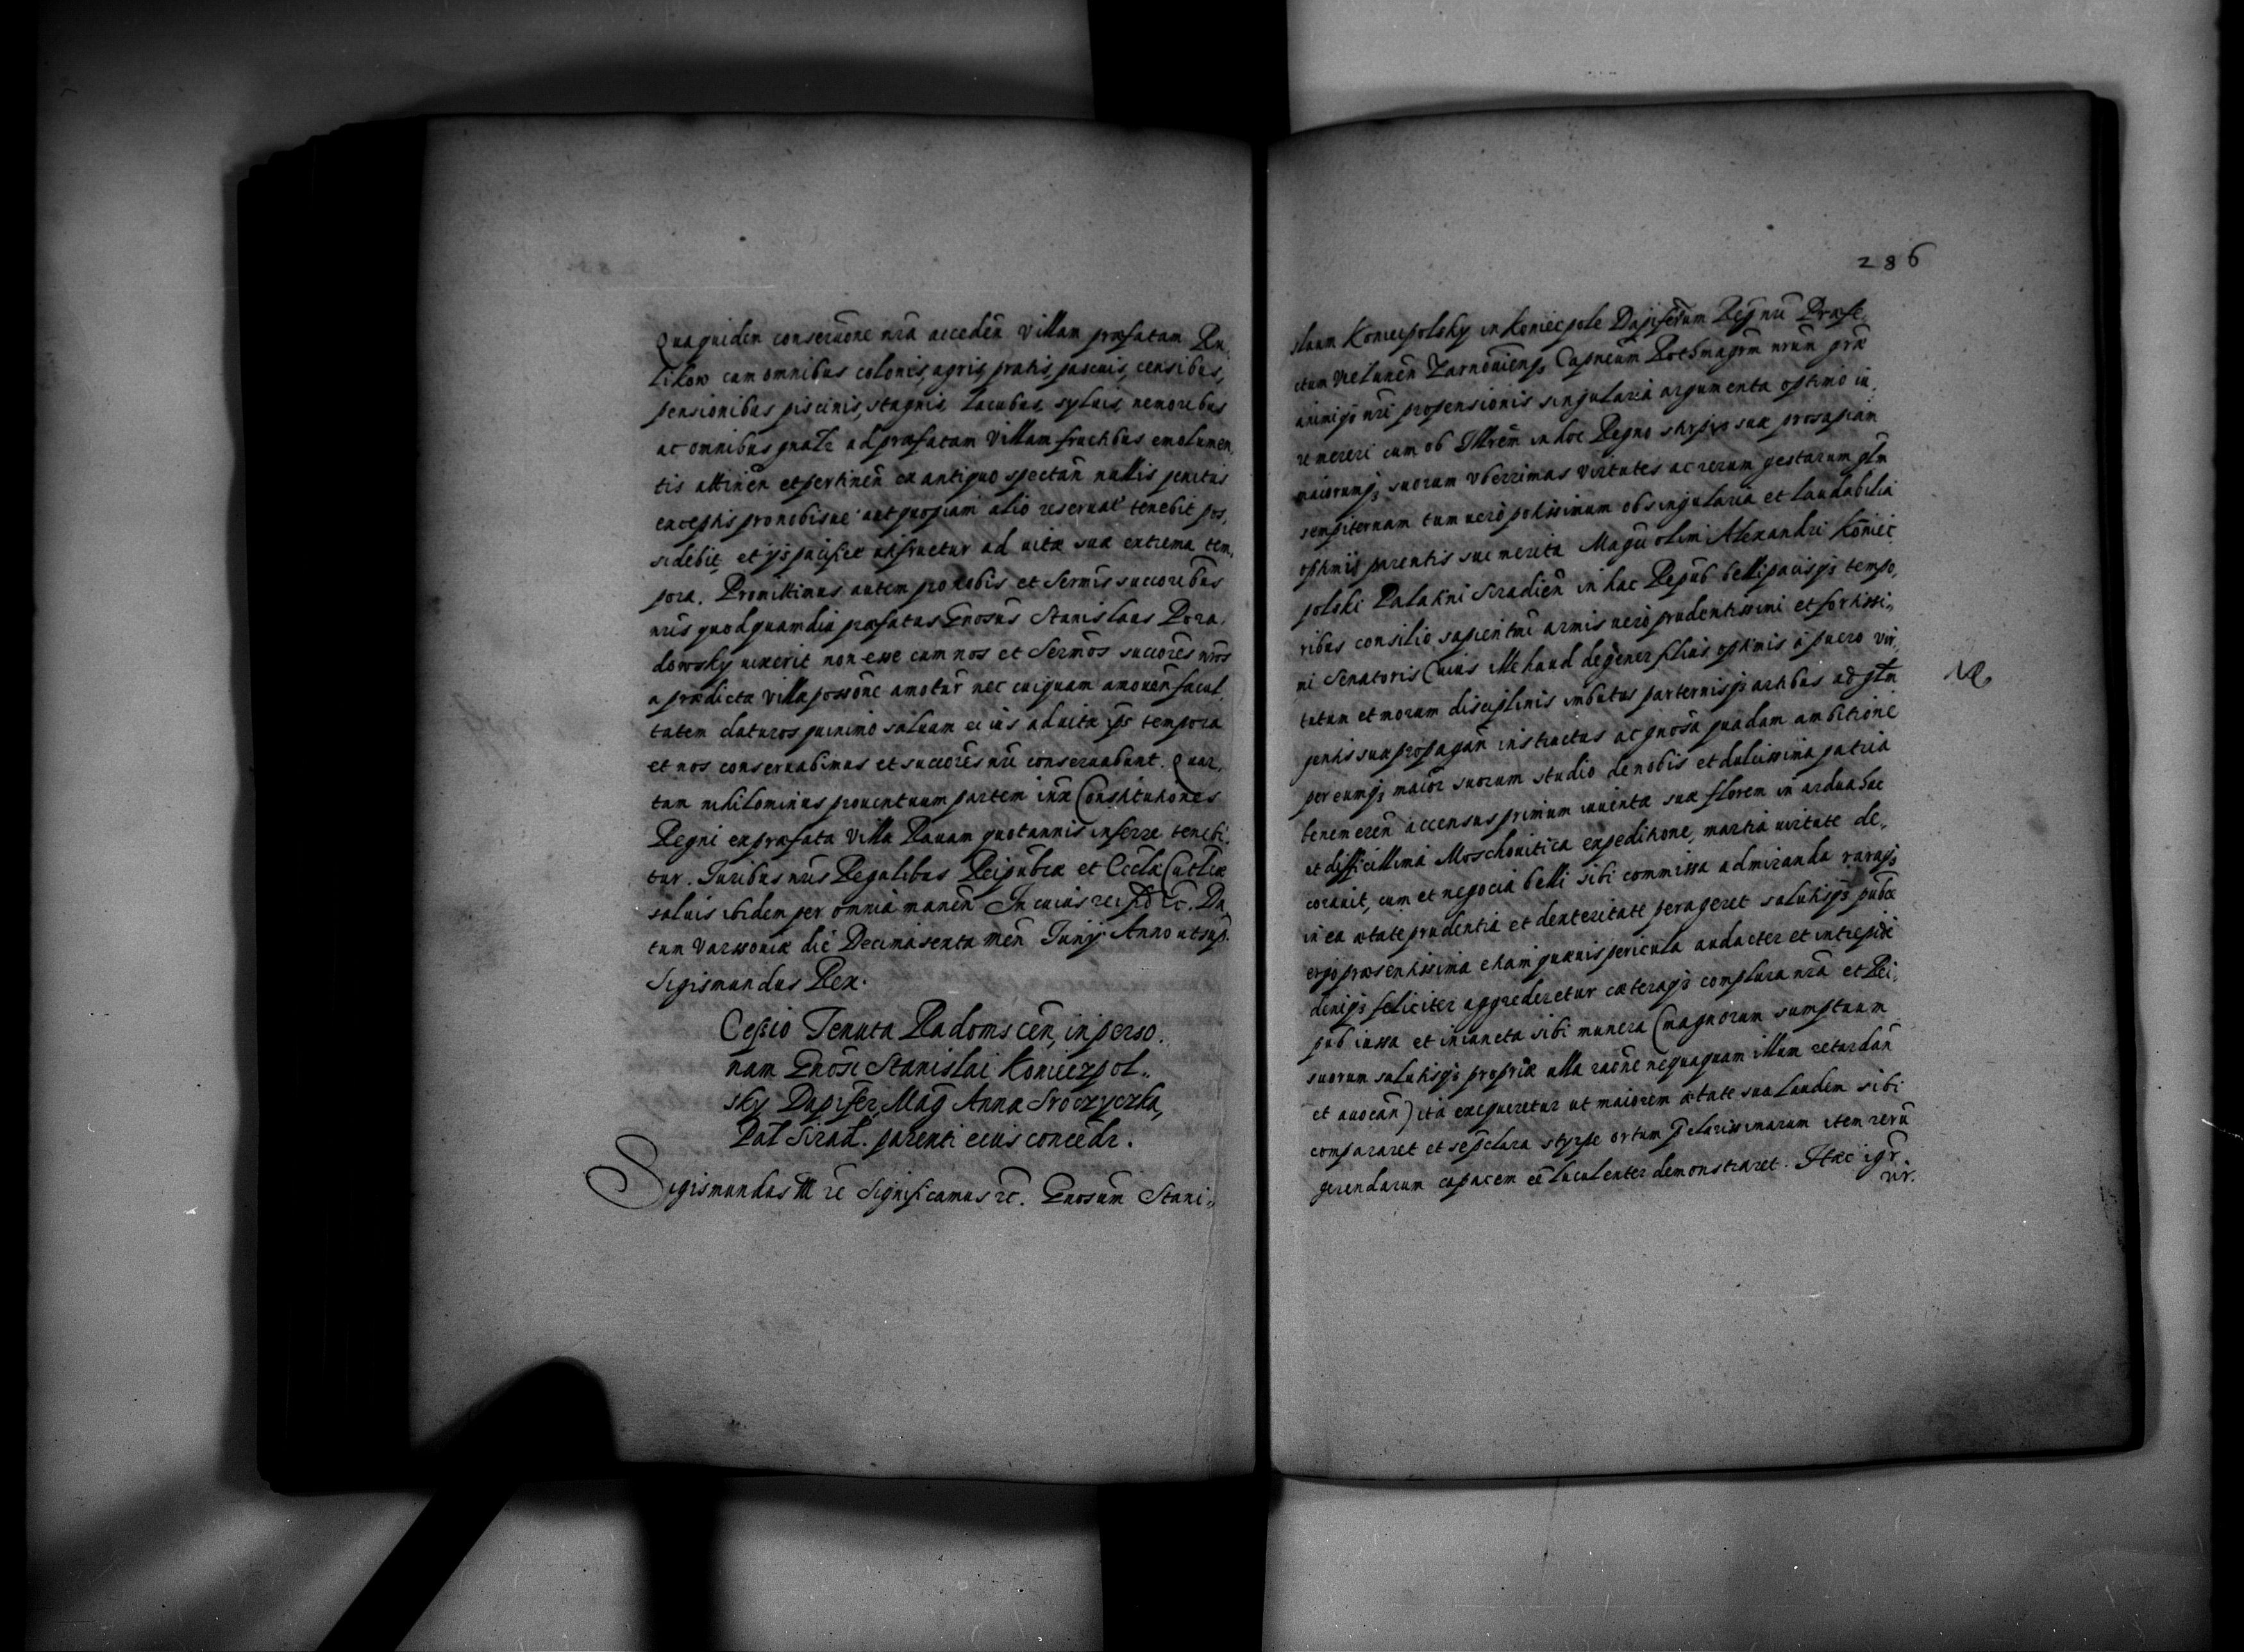 Quaquidem conservaōne nrā acceden̄ Villam præfatam Ru,
likow cum omnibus colonis, agris, pratis, pascuis, censibus,
pensionibus piscinis, stagnis, lacubus, syluis, nemoribus
ac omnibus gnalr̄ ad præfatam Villam fructibus emolumen,
tis attinen̄ et pertinen̄ ex antiquo spectan̄ nullis penitus
exceptis pro nobisue aut quopiam alio reservat̄ tenebit pos,
sidebit, et ijs pacificæ utfruetur ad uitæ suæ extrema tem,
pora. Promittimus autem pro nobis et Sermīs succoribus
nr̄is quod quamdiu præfatus Gnosūs Stanislaus Pora,
dowsky uixerit non esse cum nos et Sermōs succorēs nrōs
a prædicta villa possōne amotūr nec cuiquam amouen̄ facul,
tatem daturos quinimo saluam ei ius aduitæ ips tempora
et nos conseruabimus et succorēs nrī conseruabunt. Quar,
tam nihilominus prouentuum partem iux̄ Constitutiones
Regni ex præfata Villa Rauam quotannis inferre tenebi,
tur. Juribus nrīs Regalibus Reipub̄cæ et Eccl̄æ Cat̄læ
saluis ibidem per omnia manen̄ In cuius rei fid̄ ec̄. Da
tum Varssouiæ die Decima sexta men̄ Junij Anno ut sup̄.
Sigismundus Rex.
Cessio Tenuta Radomscen̄, in perso.
nam Gnosī Stanislai Koniecpol,,
sky Dapifer, Mag Anna Sroczyczka,
Pal̄ Sirad. parenti eius concedr̄.
Sigismundus III rē Significamus rē. Gnosūm Stani,,
286
slaum Koniecpolsky in Koniecpole Dapiferum Regni nrī Præfe,
ctum Vielunen̄ Zarnouien̄q₃ Capneūm Rothmagrm̄ nrūm grā
animiq₃ nrī propensionis singularia argumenta optimo iu,
re mereri cum ob Illrēm in hoc Regno stirpis suæ prosapiam
maiorumq₃ suorum vberrimas virtutes ac rerum gestarum glm̄
sempiternam tum uerò potissimum ob singularia et laudabilia
optimi parentis sui merita Magci olim Alexandri Koniec
polski Palatini Siradien̄ in hac Repub̄ belli pacisq₃ tempo,
ribus consilio sapientmī armis uerò prudentissimi et fortissi,,
mi Senatoris Cuius ille haud degener filius optimis à puero vir,
tutum et morum disciplinis imbutus paternisq₃ artibus ad glm̄
gentis suæ propagan̄ instructus ac gnosā quadam ambitione
per eumq₃ maiōr suorum studio de nobis et dulcissima patria
benemeren̄ accensus primum iuuentæ suæ florem in ardua hac
et difficillima Moschouitica expeditione, martia uirtute de,,
corauit, cum et negocia belli sibi commissa admiranda raraq₃
in ea ætate prudentia et dexteritate perageret salutisq₃ pub̄cæ
ergo præsentissima etiam quæuis pericula audacter et intrepidè
deniq₃ feliciter aggrederetur cæteraq₃ complura nrā et Rei,
pub̄ iussa et iniuncta sibi munera (magnorum sumptuum
suorum salutisq₃ propriæ ulla raōne nequaquam illum retardan̄
et auocan̄) ita exequeretur ut maiorem ætate sua laudem sibi
compararet et se p̄clara styrpe ortum p̄clarissimarum item rerū
gerendarum capacem eē luculenter demonstraret. Hæc igr̄.
uir.